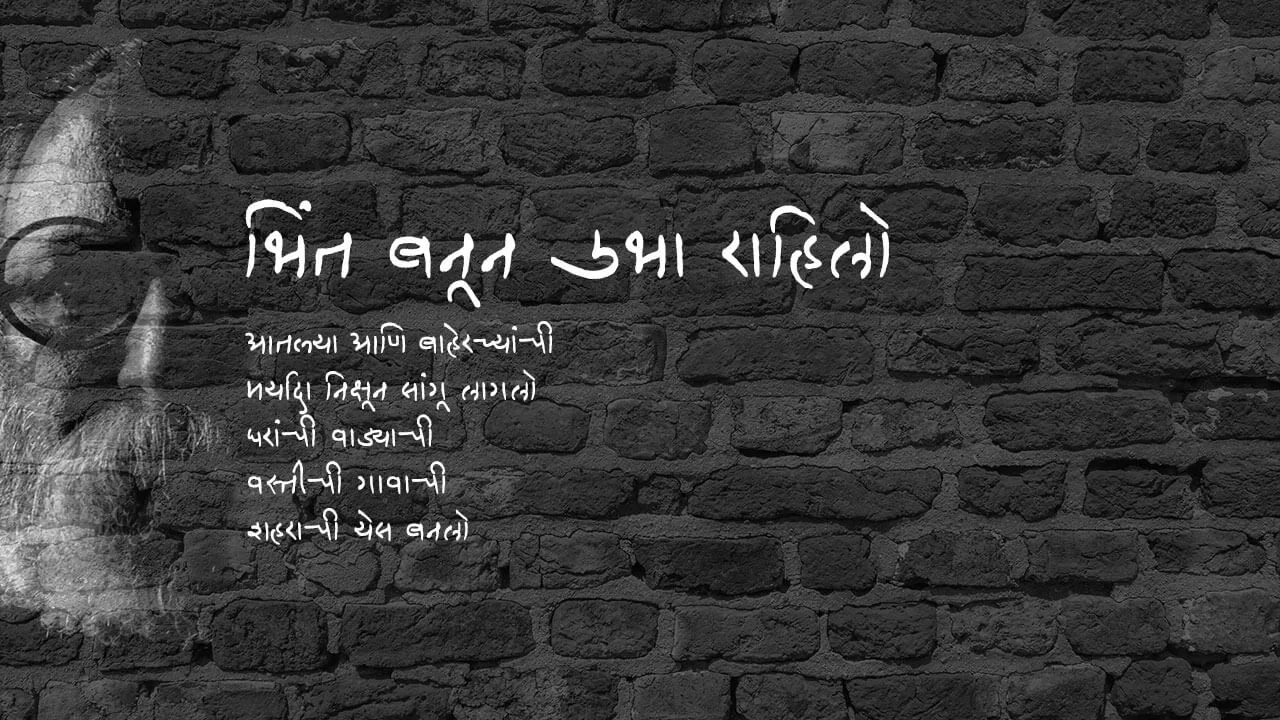 भिंत बनून उभा राहिलो
आतल्या आणि बाहेरच्यांची
मर्यादा निक्षून सांगू लागलो
घरांची वाड्याची
वस्तीची गावाची
शहराची येस बनलो